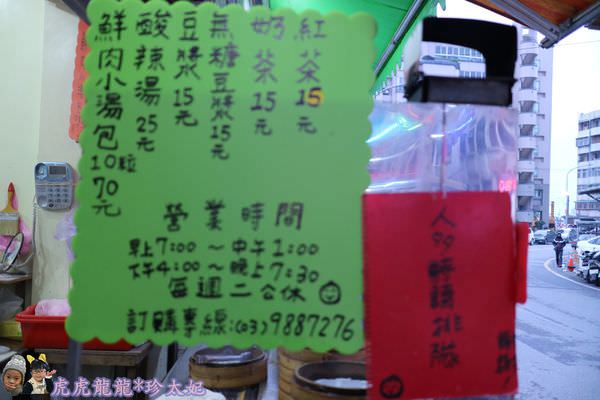 鮮肉小湯包10粒70元
酸辣湯25元
豆漿15元
無糖豆漿15元
奶茶15元
紅茶15元
營業時間
早上7:00~中午1:00
下午4:00~晚上7:30
每週二公休
訂購專線:(03)9887276
人多呼請排隊
虎虎龍龍*珍太妃